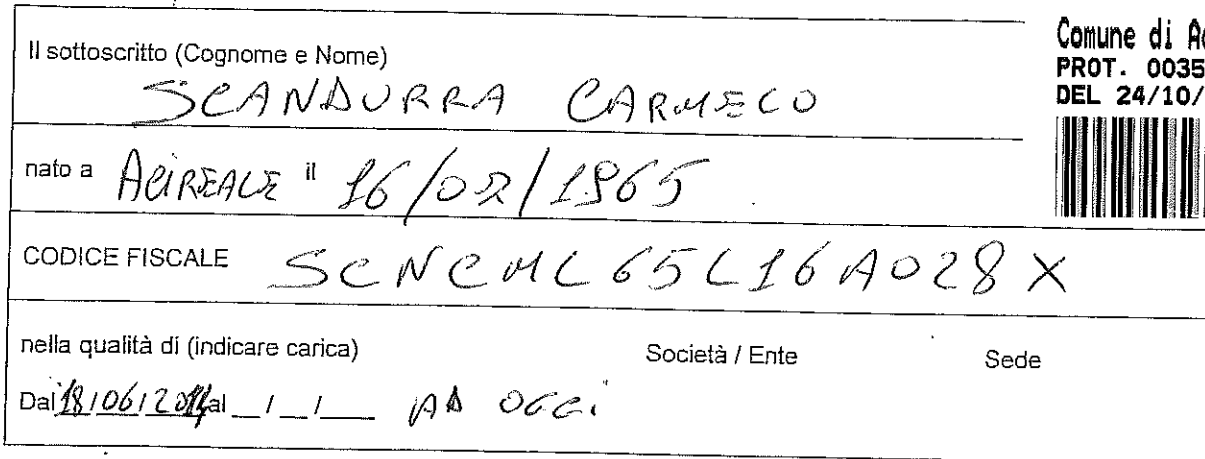 Il sottoscritto (Cognome e Nome)
SCANDURRA CARMELO
Comune di Ac
PROT. 0035
DEL 24/10/
nato a ACIREALE il 16/07/1965
CODICE FISCALE SCNCML65L16A028X
nella qualità di (indicare carica) Società / Ente Sede
Dal 18/06/2014 al __/__/____ AD OGGI